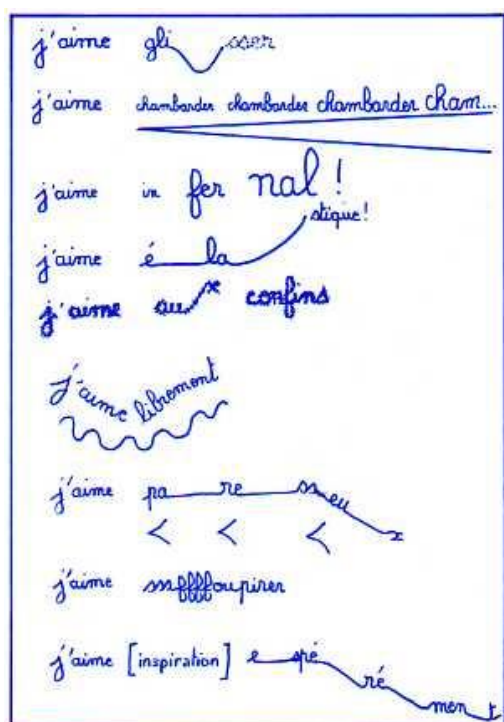 j'aime gli sser
j'aime chambarder chambarder chambarder cham...
j'aime in fer nal !
j'aime é la stique !
j'aime aux confins
j'aime librement
j'aime pa re ss eu x
j'aime ssffffoupirer
j'aime [inspiration] e spé ré men t